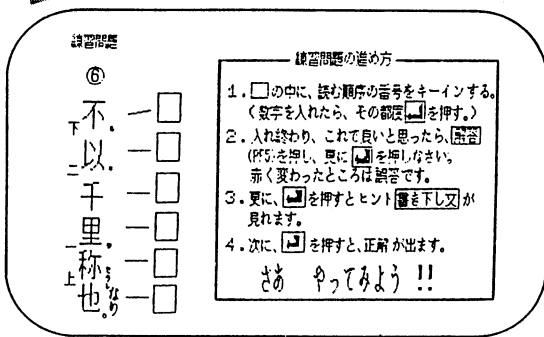 練習問題
⑥
不下
以二
千
里一
称上
也
練習問題の進め方
1.□の中に、読む順序の番号をキーインする。
(数字を入れたら、その都度↵を押す。)
2.入れ終わり、これで良いと思ったら、解答
(PF5)を押し、更に↵を押しなさい。
赤く変わったところは誤答です。
3.更に、↵を押すとヒント書き下し文が
見れます。
4.次に、↵を押すと、正解が出ます。
さあ やってみよう!!